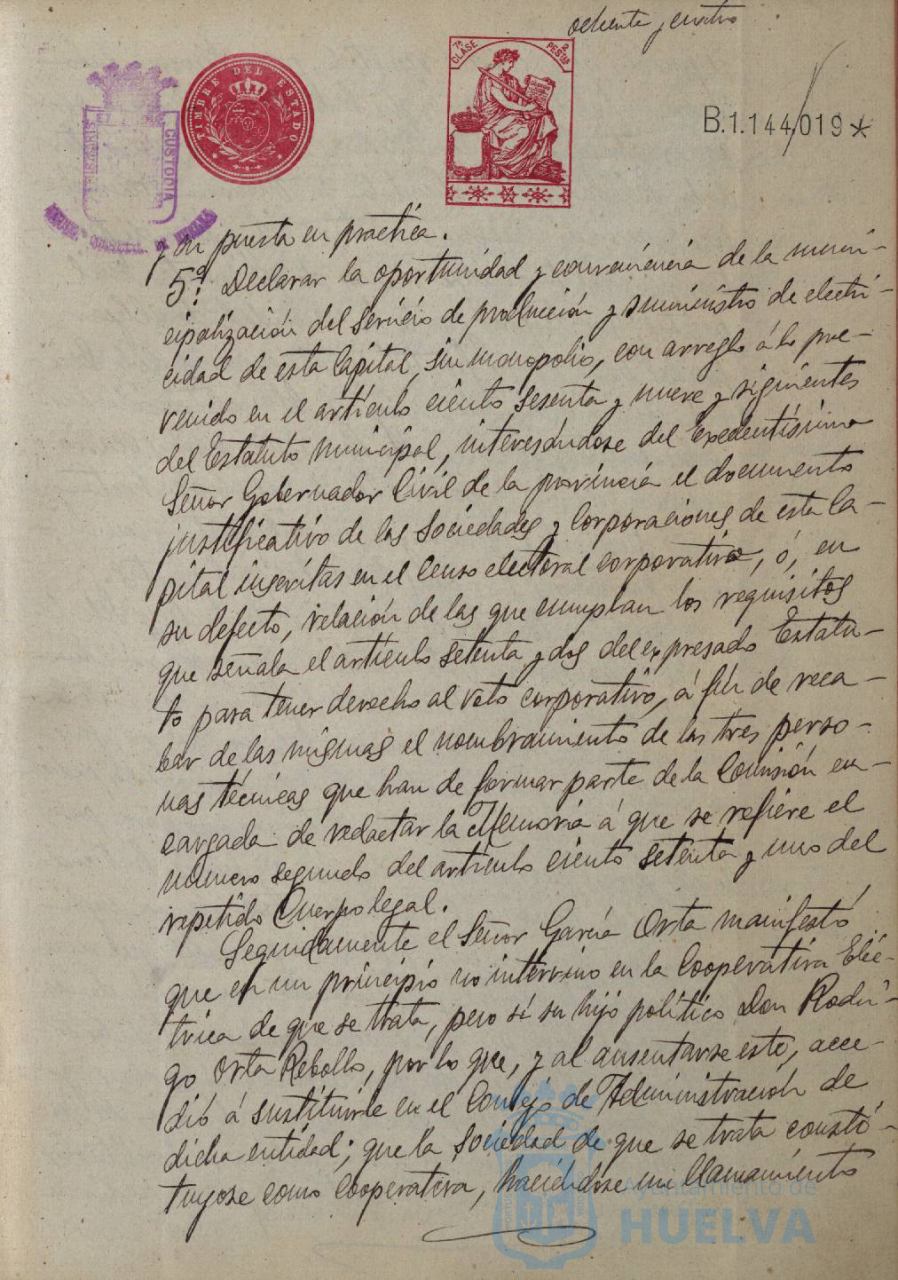 ochenta y cuatro
7ª CLASE 2 PESTAS
TIMBRE DEL ESTADO
CUSTODIA
B.1.144,019*
y su puesta en practica.
5º. Declarar la oportunidad y conveniencia de la muni-
cipalización del servicio de producción y suministro de electri-
cidad de esta Capital, sin monopolio, con arreglo á lo pre-
venido en el artículo ciento sesenta y nueve y siguientes
del Estatuto Municipal, interesándose del Excelentísimo
Señor Gobernador Civil de la provincia el documento
justificativo de las Sociedades y Corporaciones de esta Ca-
pital inscritas en el Censo electoral corporativo, ó, en
su defecto, relación de las que cumplan los requisitos
que señala el artículo setenta y dos del expresado Estatu-
to para tener derecho al voto corporativo, á fin de reca-
bar de las mismas el nombramiento de las tres perso-
nas técnicas que han de formar parte de la Comisión en-
cargada de redactar la Memoria á que se refiere el
número segundo del artículo ciento setenta y uno del
repetido Cuerpo legal.
Seguidamente el Señor García Orta manifestó
que en un principio no intervino en la Cooperativa Eléc-
trica de que se trata, pero sí su hijo político Don Rodri-
go Orta Rebollo, por lo que, y al ausentarse este, acce-
dió á sustituirle en el Consejo de Administración de
dicha entidad; que la Sociedad de que se trata constí-
tuyose como Cooperativa, haciéndose un llamamiento
Ayuntamiento de
HUELVA